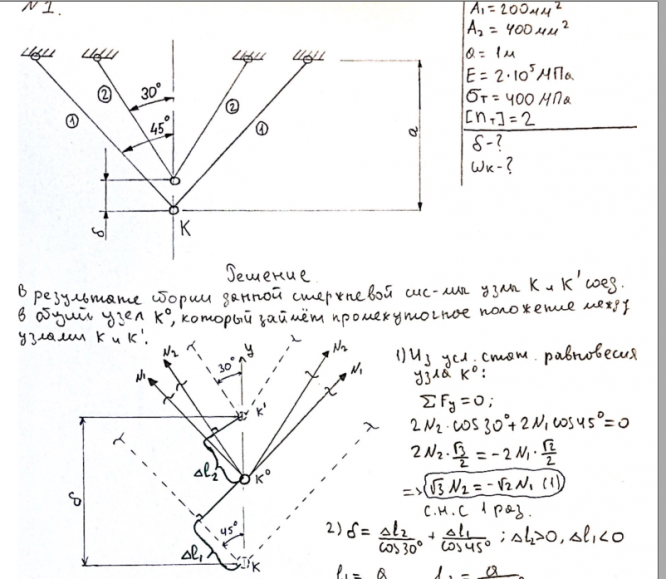 N 1.
A₁ = 200мм²
A₂ = 400мм²
a = 1м
E = 2·10⁵ МПа
σт = 400 МПа
[nт] = 2
δ-?
ωк-?
30°
45°
②
②
①
①
a
δ
K
Решение
В результате сборки данной стержневой сис-мы узлы K и K' соед.
в общий узел K°, который займёт промежуточное положение между
узлами K и K'.
N₁
N₂
30°
y
N₂
N₁
K'
Δl₂
K°
δ
45°
Δl₁
K
1) Из усл. стат. равновесия
узла K°:
ΣFy = 0;
2N₂·cos30° + 2N₁cos45° = 0
2N₂·√3/2 = -2N₁·√2/2
=> √3 N₂ = -√2 N₁ (1)
С.Н.С 1 раз.
2) δ = Δl₂/cos30° + Δl₁/cos45° ; Δl₂>0, Δl₁<0